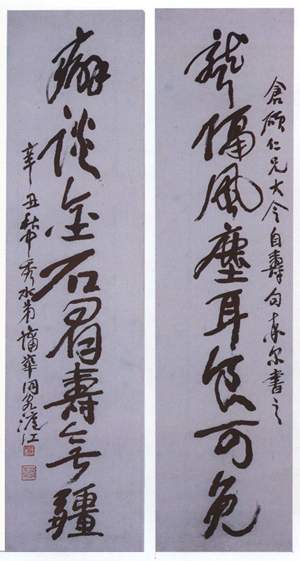 倉碩仁兄大令自壽句索尔書之
聾隔風塵耳食可免
癖談金石眉壽無疆
辛丑秀水弟蒲華同客滬江